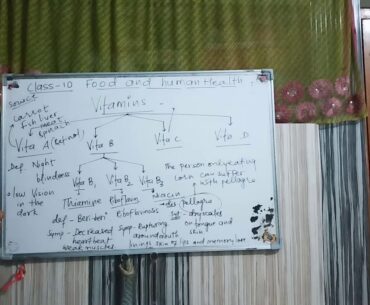 Class-10 Food and human Health
Source
Vitamins
carrot
fish liver
meat
Vita A (Retinol)
Vita B
Vita C
Vita D
Def Night
blindness
Low Vision
in the
dark
Vita B1
Vita B2
Vita B3
The person only eating
corn can suffer
with pellagra
Thiamine
Riboflavin
Niacin
def - Beri-beri
Riboflavinosis
def (Pellagra)
Symp - Decreased
heartbeat
weak muscles
Symp -
around mouth
on tongue and
skin
skin of lips and memory loss